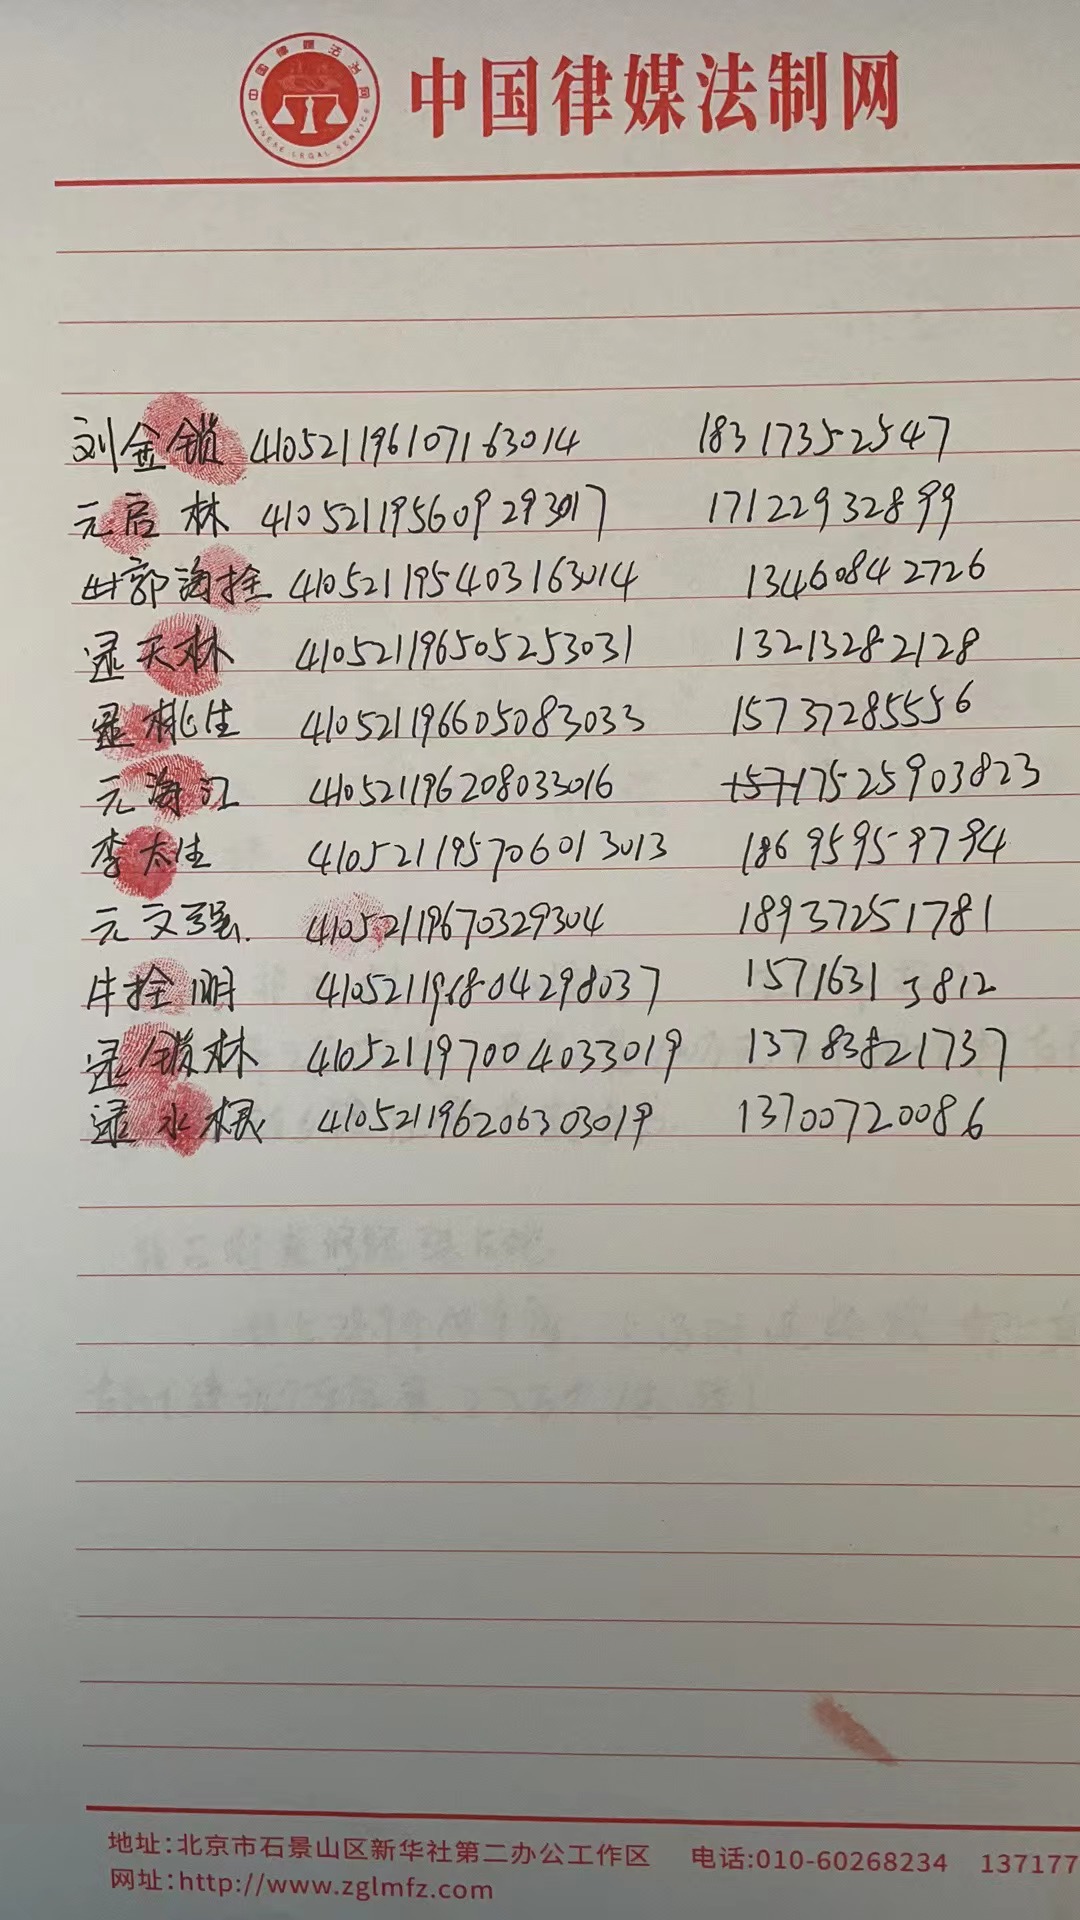 中国律媒法制网
CHINESE LEGAL SERVICE
刘金锁 410521196107163014 18317352547
元启林 410521195609293017 17122932899
郭海拴 410521195403163014 13460842726
逯天林 410521196505253031 13213282128
逯桃生 410521196605083033 15737285556
元海江 410521196208033016 157117525903823
李太生 410521195706013013 18695959794
元文强 41052119670329304 18937251781
牛拴明 410521196804298037 15716313812
逯锁林 410521197004033019 13783821737
逯水根 410521196206303019 13700720086
地址:北京市石景山区新华社第二办公工作区 电话:010-60268234 137177
网址:http://www.zglmfz.com